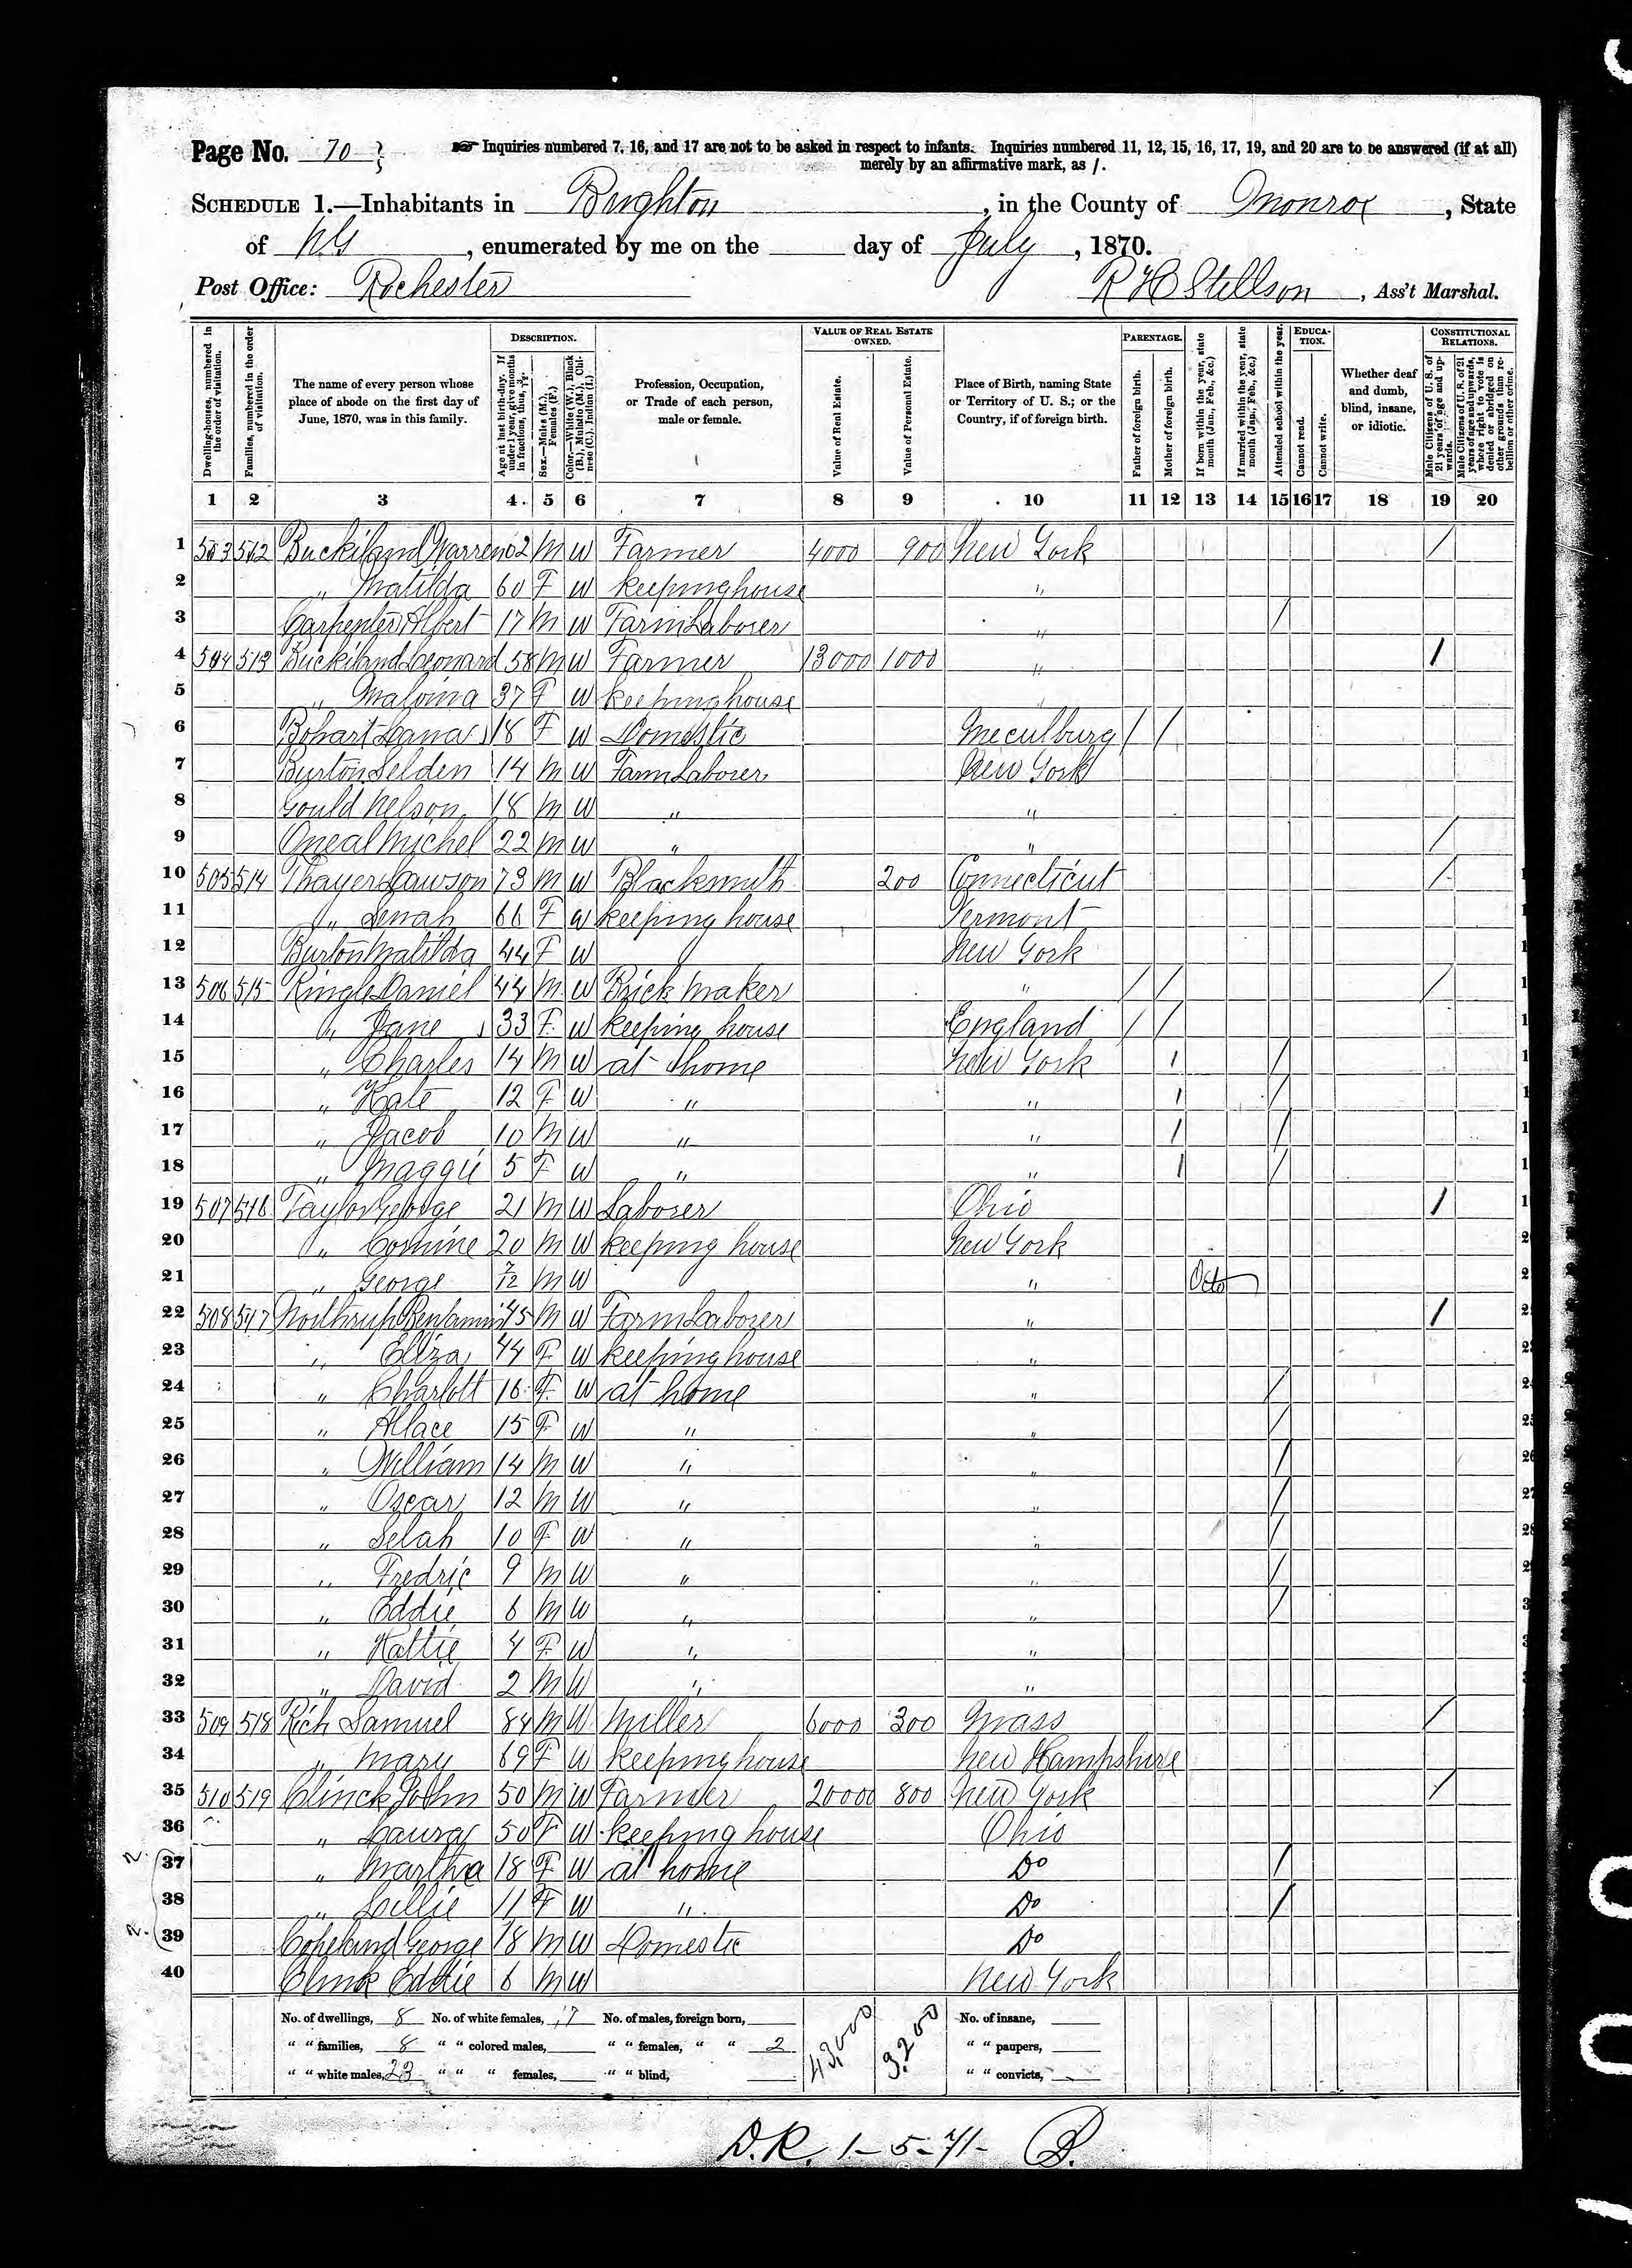 Page No. 70
☞ Inquiries numbered 7, 16, and 17 are not to be asked in respect to infants. Inquiries numbered 11, 12, 15, 16, 17, 19, and 20 are to be answered (if at all)
merely by an affirmative mark, as /.
SCHEDULE 1.—Inhabitants in Brighton, in the County of Monroe, State
of N.Y, enumerated by me on the day of July, 1870.
Post Office: Rochester
R H Stillson, Ass't Marshal.
Dwelling-houses, numbered in the order of visitation.
Families, numbered in the order of visitation.
The name of every person whose place of abode on the first day of June, 1870, was in this family.
DESCRIPTION.
Age at last birth-day. If under 1 year, give months in fractions, thus, 3/12.
Sex.—Males (M.), Females (F.)
Color.—White (W.), Black (B.), Mulatto (M.), Chinese (C.), Indian (I.)
Profession, Occupation, or Trade of each person, male or female.
VALUE OF REAL ESTATE OWNED.
Value of Real Estate.
Value of Personal Estate.
Place of Birth, naming State or Territory of U. S.; or the Country, if of foreign birth.
PARENTAGE.
Father of foreign birth.
Mother of foreign birth.
If born within the year, state month (Jan., Feb., &c.)
If married within the year, state month (Jan., Feb., &c.)
Attended school within the year.
EDUCATION.
Cannot read.
Cannot write.
Whether deaf and dumb, blind, insane, or idiotic.
CONSTITUTIONAL RELATIONS.
Male Citizens of U. S. of 21 years of age and upwards.
Male Citizens of U. S. of 21 years of age and upwards, where right to vote is denied or abridged on other grounds than rebellion or other crime.
1 2 3 4 5 6 7 8 9 10 11 12 13 14 15 16 17 18 19 20
1 503 512 Buckiland Warren M W Farmer 4000 900 New York /
2 " Matilda 60 F W keeping house "
3 Carpenter Albert 17 M W Farm Laborer " /
4 504 513 Buckiland Leonard 58 M W Farmer 13000 1000 " /
5 " Malvina 37 F W keeping house "
6 Bohart Lana 18 F W Domestic Meculburg / /
7 Burton Selden 14 M W Farm Laborer New York
8 Gould Nelson 18 M W " "
9 Oneal Michel 22 M W " " /
10 505 514 Thayer Lawson 73 M W Blacksmith 200 Connecticut /
11 " Senah 66 F W keeping house Vermont
12 Burton Matilda 44 F W New York
13 506 515 Ringle Daniel 44 M W Brick Maker " / / /
14 " Jane 33 F W keeping house England / /
15 " Charles 14 M W at home New York / /
16 " Kate 12 F W " " / /
17 " Jacob 10 M W " " / /
18 " Maggie 5 F W " " / /
19 507 516 Taylor George 21 M W Laborer Ohio /
20 " 20 M W keeping house New York
21 " George 7/12 M W " Octo
22 508 517 Northrup Benjamin 45 M W Farm Laborer " /
23 " Eliza 44 F W keeping house "
24 " Charlott 16 F W at home " /
25 " Allace 15 F W " " /
26 " William 14 M W " " /
27 " Oscar 12 M W " " /
28 " Selah 10 F W " " /
29 " Fredric 9 M W " " /
30 " Eddie 6 M W " " /
31 " Hattie 4 F W " "
32 " David 2 M W " "
33 509 518 Rich Samuel 84 M W Miller 6000 300 Mass /
34 " Mary 69 F W keeping house New Hampshire
35 510 519 Clinck John 50 M W Farmer 20000 800 New York /
36 " Laura 50 F W keeping house Ohio
37 " Martha 18 F W at home Do /
38 " Lillie 11 F W " Do /
39 Copeland George 18 M W Domestic Do
40 Clink Eddie 6 M W New York
No. of dwellings, 8 No. of white females, 17 No. of males, foreign born, 43,000 3.200 No. of insane,
" " families, 8 " " colored males, " " females, " " 2 " " paupers,
" " white males, 23 " " " females, " " blind, " " convicts,
D.R. 1-5-71- B.